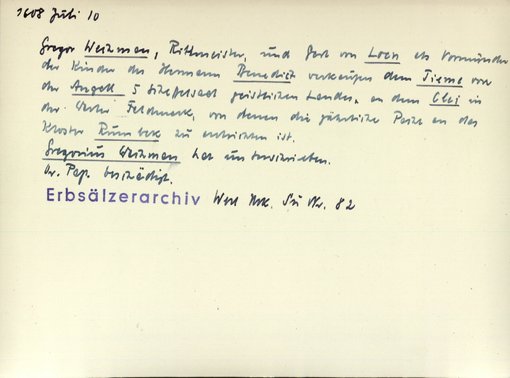 1608 Juli 10
Gregor Weihman, Rittmeister, und Jost von Loen als Vormünder
der Kinder des Hermann Benedict verkaufen dem Tieme von
der Angelt 5 Scheffelsaat geistlichen Landes, an dem Clei in
der Werler Feldmark, von denen die jährliche Pacht an das
Kloster Rumbek zu entrichten ist.
Gregorius Weihman hat unterschrieben.
Or. Pap. beschädigt.
Erbsälzerarchiv Werl Nr. 82